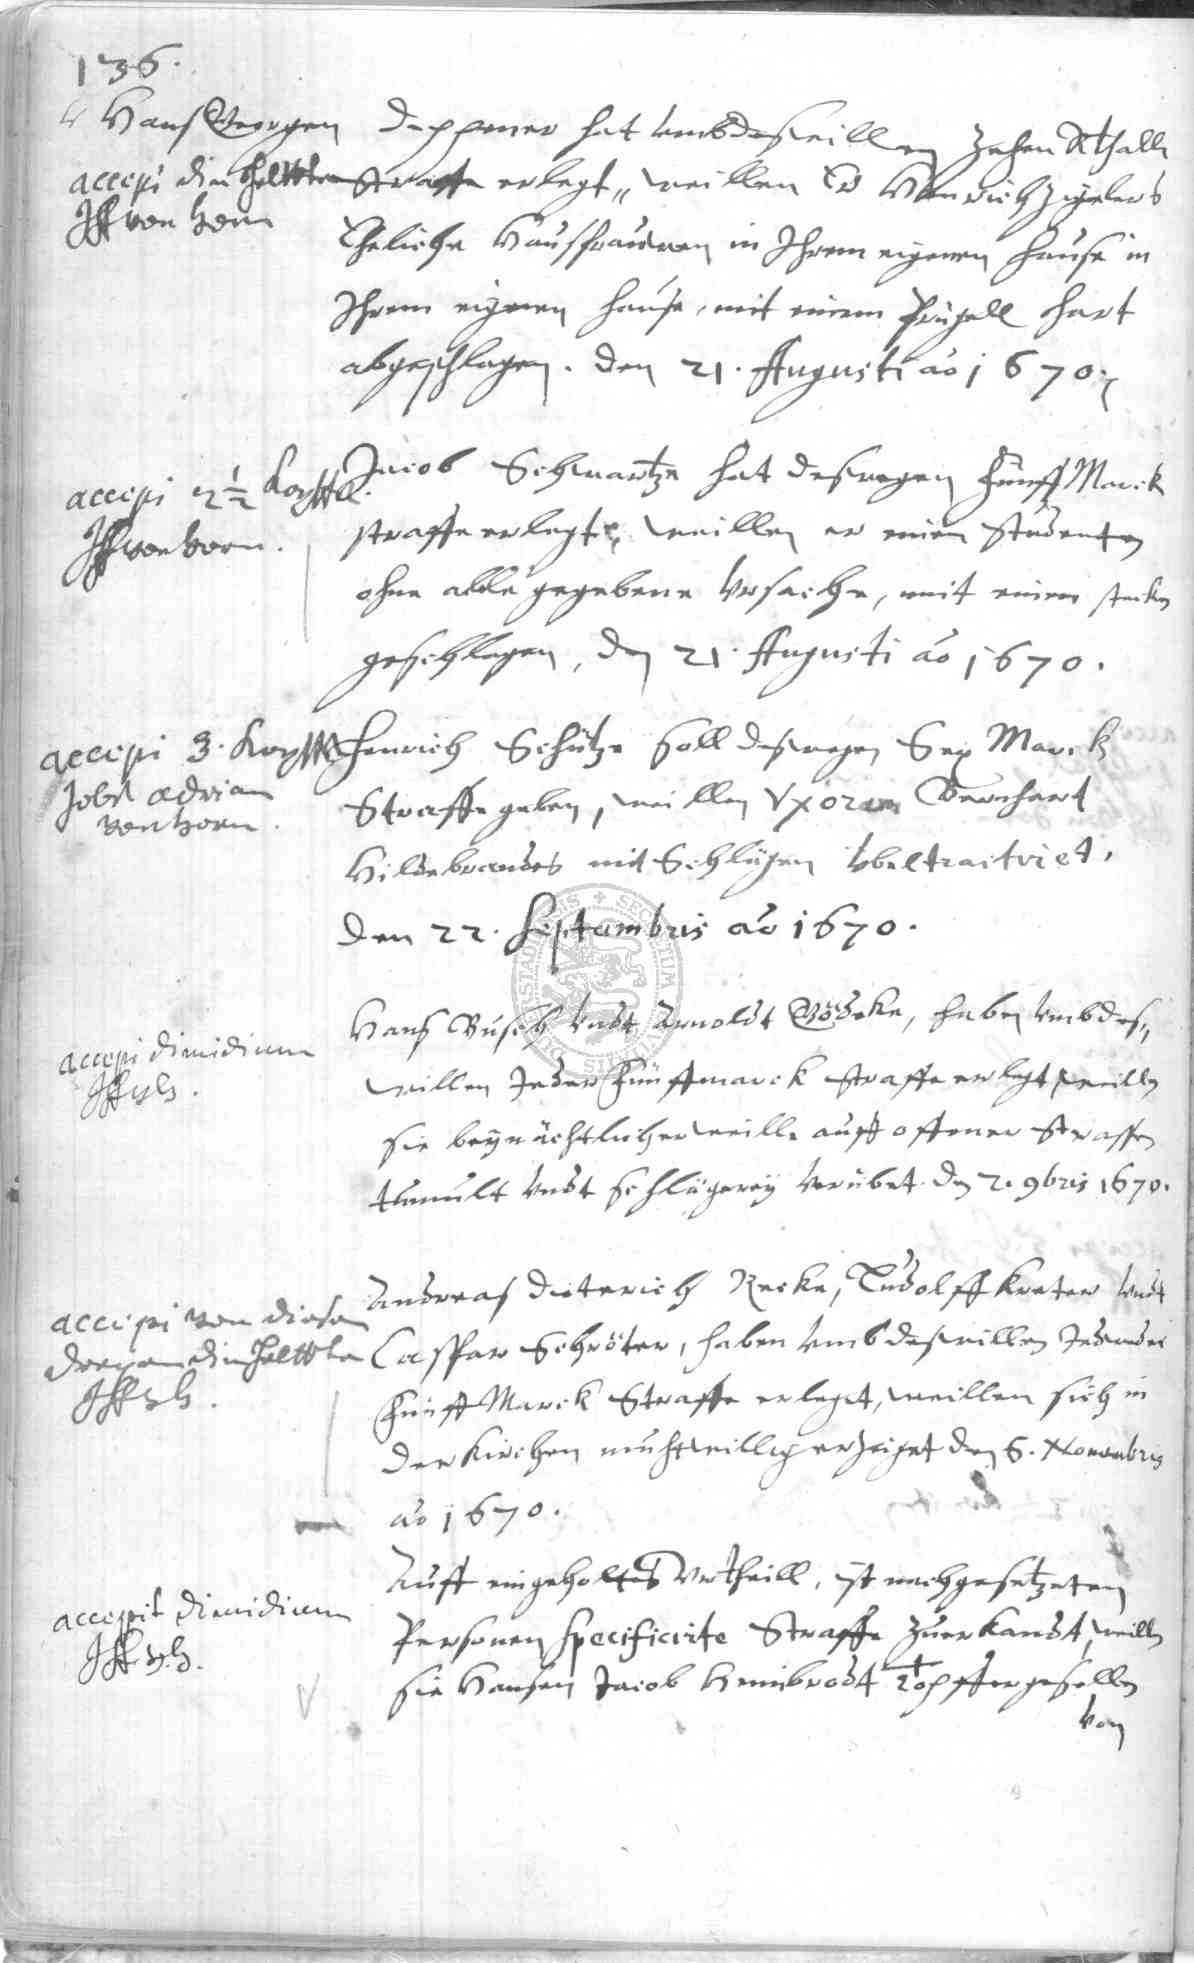 136.
Hans Georgen Deppener hat umbdeswillen Zehen Rthall
accepi die helffte
JH von horn
Straffe erlegt, weillen Er Henrich Zigelers
Eheliche Haussfrauwen in Ihrem eigenen hause in
Ihrem eigenen hause, mit einem Prügell hart
abgeschlagen. den 21. Augusti ao 1670.
accepi 2 1/2 Kopffst.
JH von horn.
Jacob Schwartze hat deswegen Fünff Marck
straffe erlegt, weillen er einen studenten
ohne alle gegebene Ursache, mit einem stecken
geschlagen, den 21. Augusti ao 1670.
accepi 3. Kopffst
Jobst adrian
von horn.
Henrich Schütze soll deswegen Sex Marck
Straffe geben, weillen Uxorem Bernhart
Hildebrandes mit Schlägen übel tractiret,
den 22. Septembris ao 1670.
accepi dimidium
Hans Busch undt Arnoldt Gödeke, haben umbdes,,
willen Jeder Fünff marck straffe erlegt, weilln
sie bey nächtlicher weille auff offener Strassen
tumult undt schlägerey verübet. den 2. 9bris 1670.
accepi von diesen
dreyen die helffte
Andreas Dieterich Recke, Ludolff Kreter undt
Casspar Schröter, haben umb deswillen Jeder
Fünff Marck Straffe erlegt, weillen sich in
der Kirchen muhtwillig erzeiget den 6. Novembris
ao 1670.
accepit dimidium
Auff eingeholtes Urtheill, ist nachgesetzeten
Personen specificirte Straffe zuerkandt, weilln
sie Hansen Jacob Heimbrodt Töpffergesellen
von